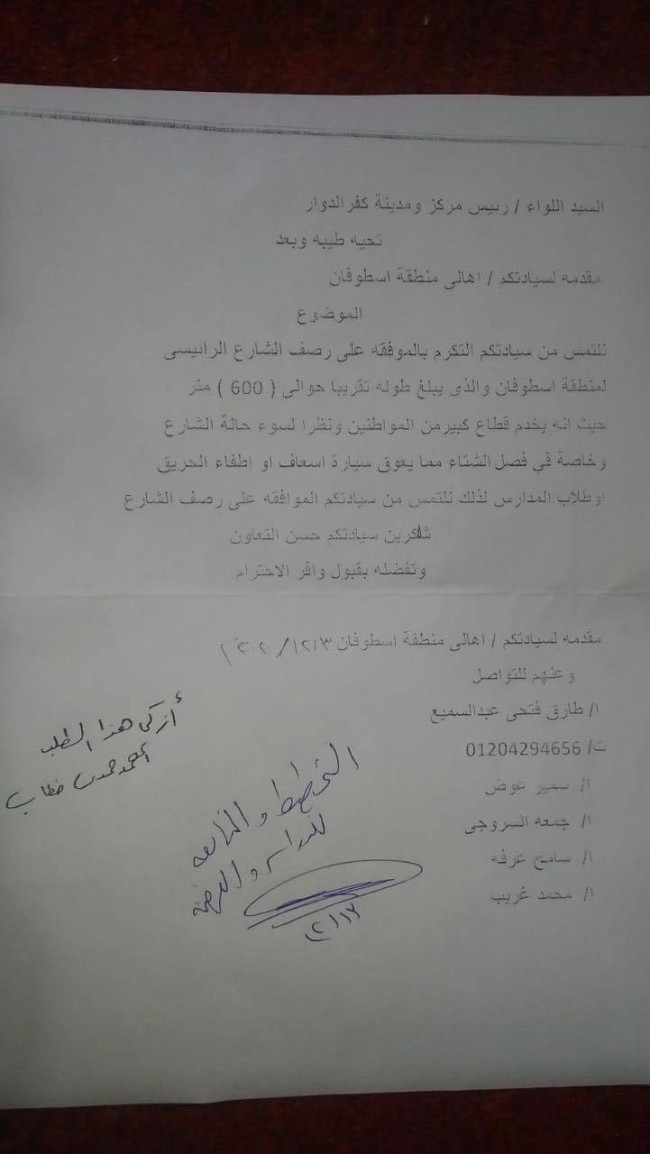 السيد اللواء / رئيس مركز ومدينة كفرالدوار
تحيه طيبه وبعد
مقدمه لسيادتكم / اهالى منطقة اسطوفان
الموضوع
نلتمس من سيادتكم التكرم بالموفقه على رصف الشارع الرائيسى
لمنطقة اسطوفان والذى يبلغ طوله تقريبا حوالى ( 600 ) متر
حيث انه يخدم قطاع كبيرمن المواطنين ونظرا لسوء حالة الشارع
وخاصة فى فصل الشتاء مما يعوق سيارة اسعاف او اطفاء الحريق
اوطلاب المدارس لذلك نلتمس من سيادتكم الموافقه على رصف الشارع
شاكرين سيادتكم حسن التعاون
وتفضله بقبول وافر الاحترام
مقدمه لسيادتكم / اهالى منطقة اسطوفان
وعنهم للتواصل
ا/ طارق فتحى عبدالسميع
ت/ 01204294656
ا/ سمير عوض
ا/ جمعه السروجى
ا/ سامح عرفه
ا/ محمد غريب
أزكى هذا الطلب
خطاب
التخطيط والمتابعه
للدراسه والعرض